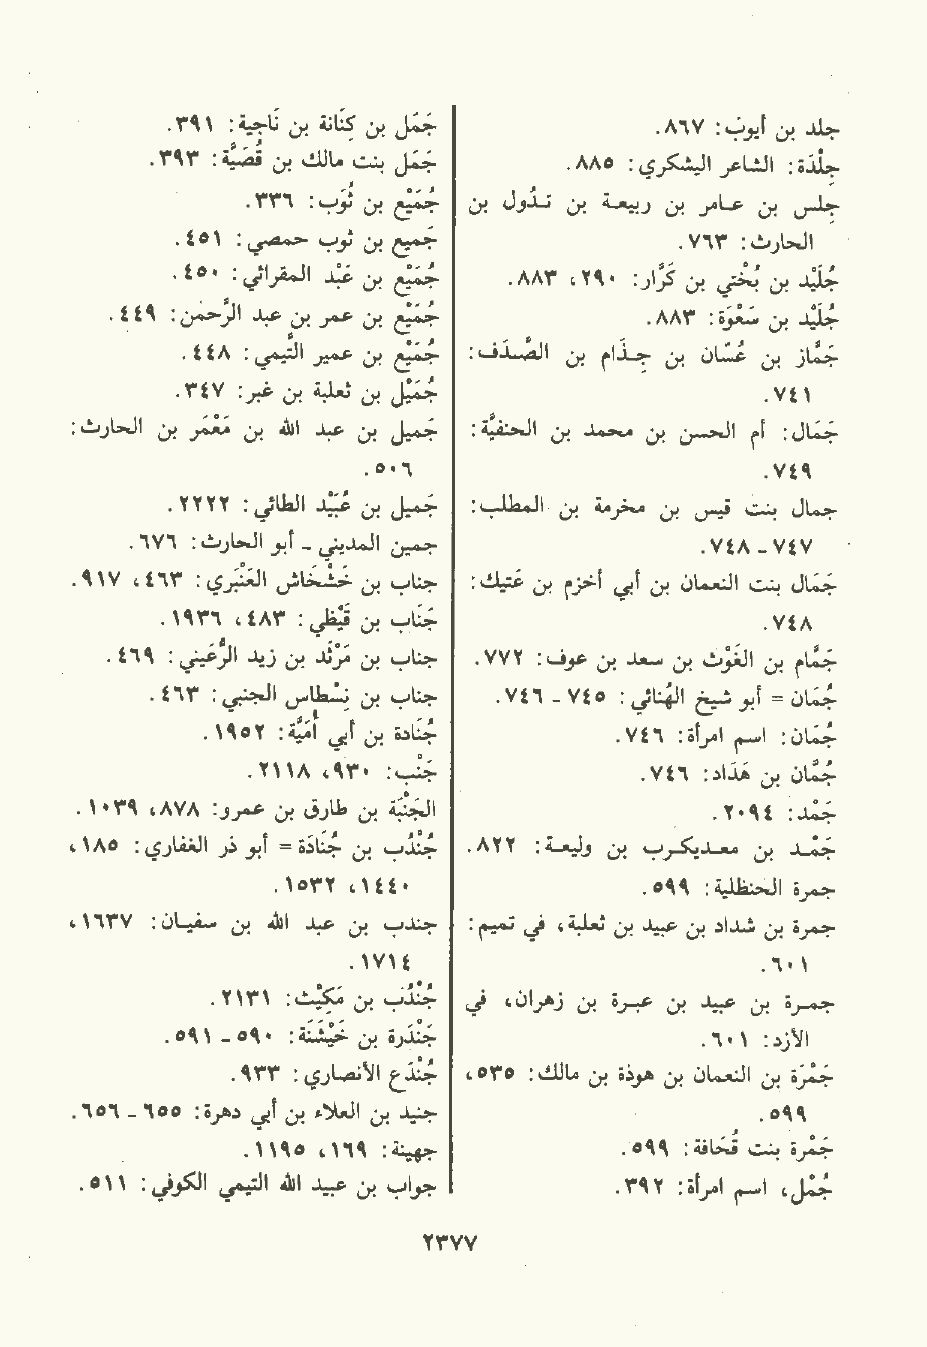 جلد بن أيوب: ٨٦٧.
جِلْدَة: الشاعر اليشكري: ٨٨٥.
جِلس بن عامر بن ربيعة بن تَدُول بن
الحارث: ٧٦٣.
جُلَيْد بن بُخْتي بن كَرَّار: ٢٩٠، ٨٨٣.
جُلَيْد بن سَعْوَة: ٨٨٣.
جَمَّاز بن غُسَّان بن جِذَام بن الصَّدَف:
٧٤١.
جَمَال: أم الحسن بن محمد بن الحنفيَّة:
٧٤٩.
جمال بنت قيس بن مخرمة بن المطلب:
٧٤٧ - ٧٤٨.
جَمَال بنت النعمان بن أبي أخزم بن عَتيك:
٧٤٨.
جَمَّام بن الغَوْث بن سعد بن عوف: ٧٧٢.
جُمَان = أبو شيخ الهُنائي: ٧٤٥ - ٧٤٦.
جُمَان: اسم امرأة: ٧٤٦.
جُمَّان بن هَدَاد: ٧٤٦.
جَمْد: ٢٠٩٤.
جَمْد بن معديكرب بن وليعة: ٨٢٢.
جمرة الحنظلية: ٥٩٩.
جمرة بن شداد بن عبيد بن ثعلبة، في تميم:
٦٠١.
جمرة بن عبيد بن عبرة بن زهران، في
الأزد: ٦٠١.
جَمْرَة بن النعمان بن هوذة بن مالك: ٥٣٥،
٥٩٩.
جَمْرة بنت قُحَافة: ٥٩٩.
جُمْل، اسم امرأة: ٣٩٢.
جَمَل بن كِنَانة بن نَاجية: ٣٩١.
جَمَل بنت مالك بن قُصَيَّة: ٣٩٣.
جُمَيْع بن ثُوَب: ٣٣٦.
جَميع بن ثوب حمصي: ٤٥١.
جُمَيْع بن عَبْد المقرائي: ٤٥٠.
جُمَيْع بن عمر بن عبد الرَّحمٰن: ٤٤٩.
جُمَيْع بن عمير التَّيمي: ٤٤٨.
جُمَيْل بن ثعلبة بن غبر: ٣٤٧.
جَميل بن عبد الله بن مَعْمَر بن الحارث:
٥٠٦.
جَميل بن عُبَيْد الطائي: ٢٢٢٢.
جمين المديني - أبو الحارث: ٦٧٦.
جناب بن خَشْخَاش العَنْبَري: ٤٦٣، ٩١٧.
جَنَاب بن قَيْظي: ٤٨٣، ١٩٣٦.
جناب بن مَرْثَد بن زيد الرُّعَيني: ٤٦٩.
جناب بن نِسْطاس الجنبي: ٤٦٣.
جُنَادة بن أبي أُمَيَّة: ١٩٥٢.
جَنْب: ٩٣٠، ٢١١٨.
الجَنَبَة بن طارق بن عمرو: ٨٧٨، ١٠٣٩.
جُنْدُب بن جُنَادَة = أبو ذر الغفاري: ١٨٥،
١٤٤٠، ١٥٣٢.
جندب بن عبد الله بن سفيان: ١٦٣٧،
١٧١٤.
جُنْدُب بن مَكِيْث: ٢١٣١.
جَنْدَرة بن خَيْشَنَة: ٥٩٠ - ٥٩١.
جُنْدَع الأنصاري: ٩٣٣.
جنيد بن العلاء بن أبي دهرة: ٦٥٥ - ٦٥٦.
جهينة: ١٦٩، ١١٩٥.
جواب بن عبيد الله التيمي الكوفي: ٥١١.
٢٣٧٧